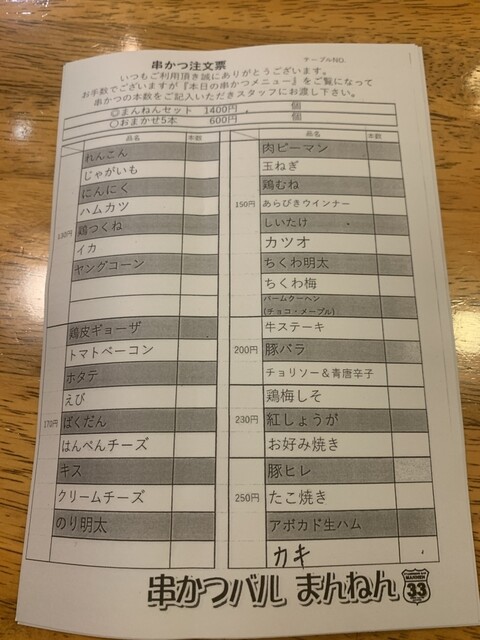 串かつ注文票
テーブルNO.
いつもご利用頂き誠にありがとうございます。
お手数でございますが『本日の串かつメニュー』をご覧になって
串かつの本数をご記入いただきスタッフにお渡し下さい。
◎まんねんセット 1400円 個
○おまかせ5本 600円 個
品名 本数
130円
れんこん
じゃがいも
にんにく
ハムカツ
鶏つくね
イカ
ヤングコーン
170円
鶏皮ギョーザ
トマトベーコン
ホタテ
えび
ばくだん
はんぺんチーズ
キス
クリームチーズ
のり明太
品名 本数
150円
肉ピーマン
玉ねぎ
鶏むね
あらびきウインナー
しいたけ
カツオ
ちくわ明太
ちくわ梅
バームクーヘン
(チョコ・メープル)
200円
牛ステーキ
豚バラ
チョリソー＆青唐辛子
230円
鶏梅しそ
紅しょうが
お好み焼き
250円
豚ヒレ
たこ焼き
アボカド生ハム
カキ
串かつバル まんねん
33